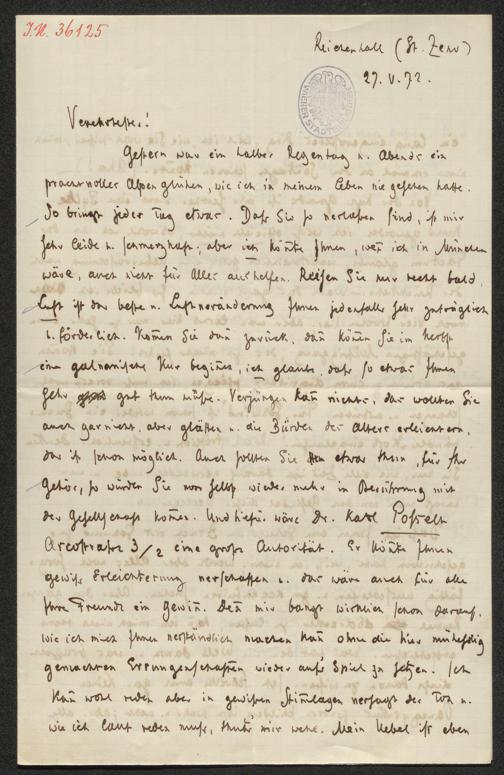 J.N. 36125
Reichenhall (St. Zeno)
27. V. 72.
Verehrtester!
Gestern war ein halber Regentag u. Abends ein
prachtvolles Alpenglühen, wie ich in meinem Leben nie gesehen hatte.
So bringt jeder Tag etwas. Daß Sie so verlassen sind, ist mir
sehr leide u. schmerzhaft; aber ich köñte Ihnen, weñ ich in München
wäre, auch nicht für Alles aushelfen. Reisen Sie nur recht bald.
Luft ist das beste u. Luftveränderung Ihnen jedenfalls sehr zuträglich
u. förderlich. Kom̄en Sie dañ zurück, dañ köñen Sie im Herbst
eine galvanische Kur begiñen, ich glaube, daß so etwas Ihnen
sehr gut thun müßte. Verjüngen kañ nichts, das wollten Sie
auch gar nicht, aber glätten u. die Bürden des Alters erleichtern,
das ist schon möglich. Auch sollten Sie etwas thun, für Ihr
Gehör, so würden Sie von selbst wieder mehr in Berührung mit
der Gesellschaft kom̄en. Und hiefür wäre Dr. Karl Posselt
Arcostraße 3/2 eine große Autorität. Er köñte Ihnen
gewiß Erleichterung verschaffen u. das wäre auch für alle
Ihre Freunde ein Gewiñ. Deñ mir bangt wirklich schon darauf,
wie ich mich Ihnen verständlich machen kañ ohne die hier mühselig
gemachten Errungenschaften wieder aufs Spiel zu setzen. Ich
kañ wohl reden aber in gewissen Stim̄lagen versagt der Ton u.
wie ich laut reden muß, thut's mir wehe. Mein Uebel ist eben